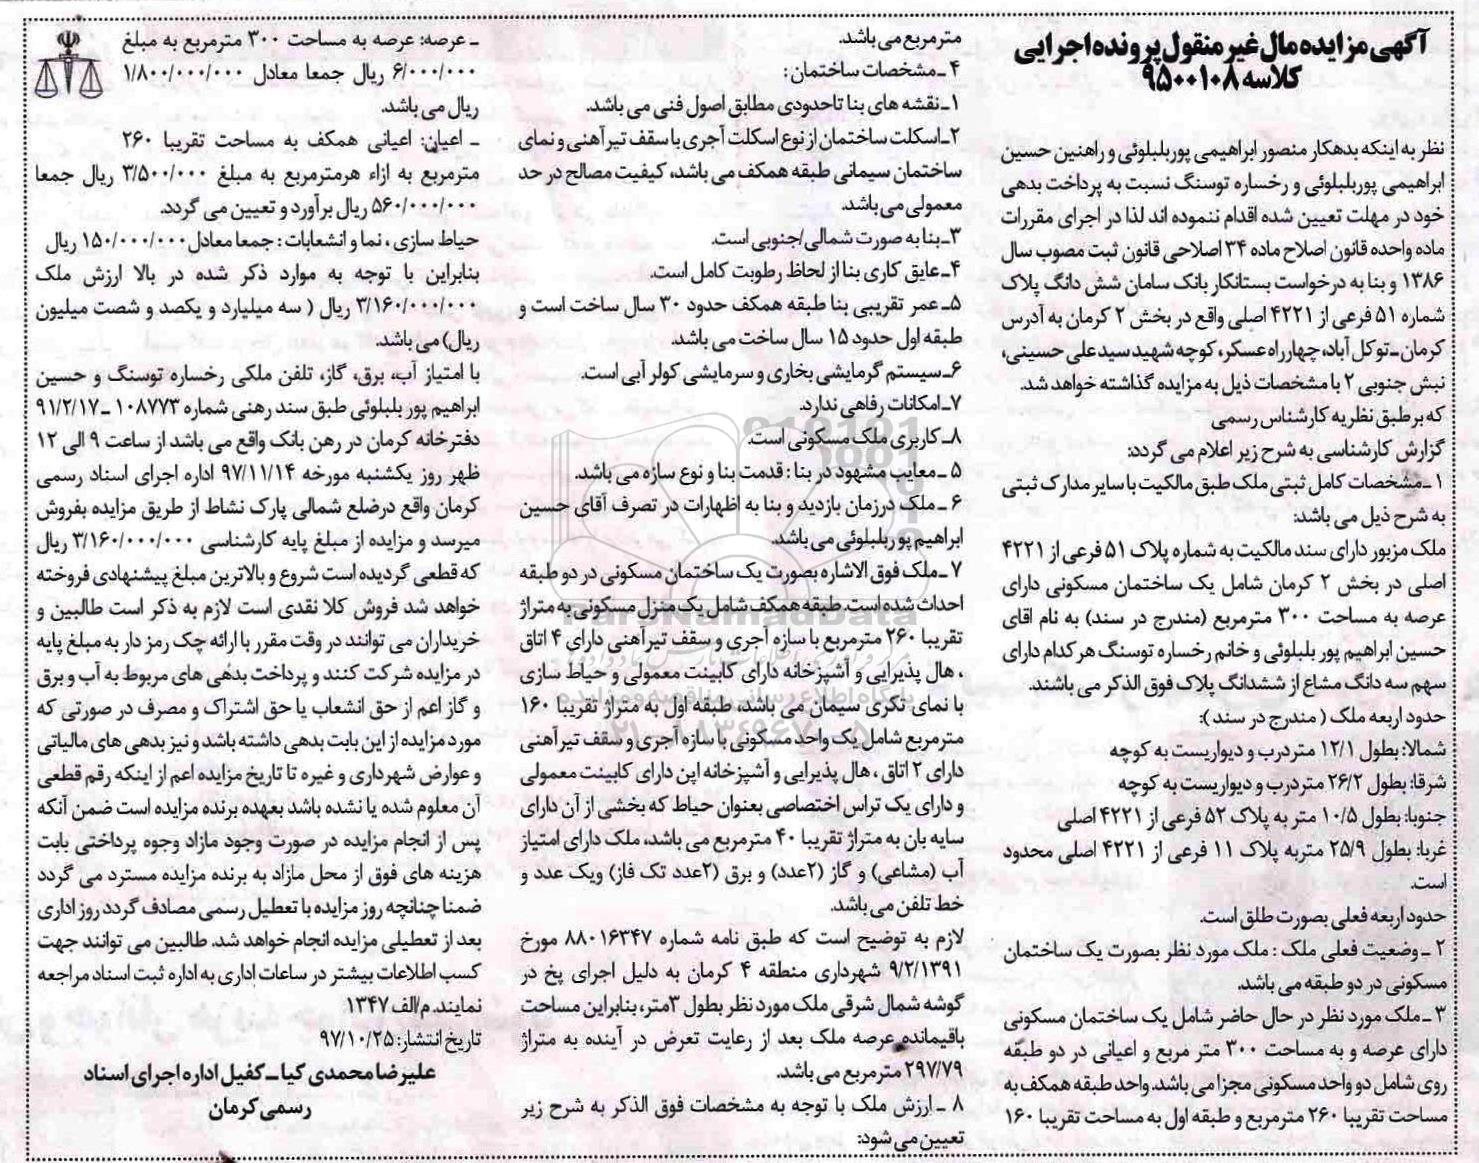 آگهی مزایده مال غیر منقول پرونده اجرایی
کلاسه ۹۵۰۰۱۰۸
نظر به اینکه بدهکار منصور ابراهیمی پوربلبلوئی و راهنین حسین
ابراهیمی پوربلبلوئی و رخساره توسنگ نسبت به پرداخت بدهی
خود در مهلت تعیین شده اقدام ننموده اند لذا در اجرای مقررات
ماده واحده قانون اصلاح ماده ۳۴ اصلاحی قانون ثبت مصوب سال
۱۳۸۶ و بنا به درخواست بستانکار بانک سامان شش دانگ پلاک
شماره ۵۱ فرعی از ۴۲۲۱ اصلی واقع در بخش ۲ کرمان به آدرس
کرمان ـ توکل آباد، چهارراه عسکر، کوچه شهید سید علی حسینی،
نبش جنوبی ۲ با مشخصات ذیل به مزایده گذاشته خواهد شد.
که بر طبق نظریه کارشناس رسمی
گزارش کارشناسی به شرح زیر اعلام می گردد:
۱ ـ مشخصات کامل ثبتی ملک طبق مالکیت با سایر مدارک ثبتی
به شرح ذیل می باشد:
ملک مزبور دارای سند مالکیت به شماره پلاک ۵۱ فرعی از ۴۲۲۱
اصلی در بخش ۲ کرمان شامل یک ساختمان مسکونی دارای
عرصه به مساحت ۳۰۰ مترمربع (مندرج در سند) به نام اقای
حسین ابراهیم پور بلبلوئی و خانم رخساره توسنگ هر کدام دارای
سهم سه دانگ مشاع از ششدانگ پلاک فوق الذکر می باشند.
حدود اربعه ملک ( مندرج در سند ):
شمالا: بطول ۱۲/۱ متر درب و دیواریست به کوچه
شرقا: بطول ۲۶/۲ متر درب و دیواریست به کوچه
جنوبا: بطول ۱۰/۵ متر به پلاک ۵۲ فرعی از ۴۲۲۱ اصلی
غربا: بطول ۲۵/۹ متر به پلاک ۱۱ فرعی از ۴۲۲۱ اصلی محدود
است.
حدود اربعه فعلی بصورت طلق است.
۲ ـ وضعیت فعلی ملک : ملک مورد نظر بصورت یک ساختمان
مسکونی در دو طبقه می باشد.
۳ ـ ملک مورد نظر در حال حاضر شامل یک ساختمان مسکونی
دارای عرصه و به مساحت ۳۰۰ متر مربع و اعیانی در دو طبقه
روی شامل دو واحد مسکونی مجزا می باشد. واحد طبقه همکف به
مساحت تقریبا ۲۶۰ مترمربع و طبقه اول به مساحت تقریبا ۱۶۰
مترمربع می باشد.
۴ ـ مشخصات ساختمان :
۱ـ نقشه های بنا تا حدودی مطابق اصول فنی می باشد.
۲ـ اسکلت ساختمان از نوع اسکلت آجری با سقف تیر آهنی و نمای
ساختمان سیمانی طبقه همکف می باشد، کیفیت مصالح در حد
معمولی می باشد.
۳ـ بنا به صورت شمالی/جنوبی است.
۴ـ عایق کاری بنا از لحاظ رطوبت کامل است.
۵ـ عمر تقریبی بنا طبقه همکف حدود ۳۰ سال ساخت است و
طبقه اول حدود ۱۵ سال ساخت می باشد.
۶ـ سیستم گرمایشی بخاری و سرمایشی کولر آبی است.
۷ـ امکانات رفاهی ندارد.
۸ـ کاربری ملک مسکونی است.
۵ ـ معایب مشهود در بنا : قدمت بنا و نوع سازه می باشد.
۶ ـ ملک در زمان بازدید و بنا به اظهارات در تصرف آقای حسین
ابراهیم پور بلبلوئی می باشد.
۷ ـ ملک فوق الاشاره بصورت یک ساختمان مسکونی در دو طبقه
احداث شده است. طبقه همکف شامل یک منزل مسکونی به متراژ
تقریبا ۲۶۰ مترمربع با سازه آجری و سقف تیر آهنی دارای ۴ اتاق
، هال پذیرایی و آشپزخانه دارای کابینت معمولی و حیاط سازی
با نمای تگری سیمان می باشد، طبقه اول به متراژ تقریبا ۱۶۰
مترمربع شامل یک واحد مسکونی با سازه آجری و سقف تیر آهنی
دارای ۲ اتاق ، هال پذیرایی و آشپزخانه اپن دارای کابینت معمولی
و دارای یک تراس اختصاصی بعنوان حیاط که بخشی از آن دارای
سایه بان به متراژ تقریبا ۴۰ مترمربع می باشد، ملک دارای امتیاز
آب (مشاعی) و گاز (۲عدد) و برق (۲عدد تک فاز) ویک عدد و
خط تلفن می باشد.
لازم به توضیح است که طبق نامه شماره ۸۸۰۱۶۳۴۷ مورخ
۹/۲/۱۳۹۱ شهرداری منطقه ۴ کرمان به دلیل اجرای پخ در
گوشه شمال شرقی ملک مورد نظر بطول ۳متر، بنابراین مساحت
باقیمانده عرصه ملک بعد از رعایت تعرض در آینده به متراژ
۲۹۷/۷۹ مترمربع می باشد.
۸ ـ ارزش ملک با توجه به مشخصات فوق الذکر به شرح زیر
تعیین می شود:
ـ عرصه: عرصه به مساحت ۳۰۰ مترمربع به مبلغ
۶/۰۰۰/۰۰۰ ریال جمعا معادل ۱/۸۰۰/۰۰۰/۰۰۰
ریال می باشد.
ـ اعیان: اعیانی همکف به مساحت تقریبا ۲۶۰
مترمربع به ازاء هرمترمربع به مبلغ ۳/۵۰۰/۰۰۰ ریال جمعا
۵۶۰/۰۰۰/۰۰۰ ریال برآورد و تعیین می گردد.
حیاط سازی ، نما و انشعابات : جمعا معادل ۱۵۰/۰۰۰/۰۰۰ ریال
بنابراین با توجه به موارد ذکر شده در بالا ارزش ملک
۳/۱۶۰/۰۰۰/۰۰۰ ریال ( سه میلیارد و یکصد و شصت میلیون
ریال) می باشد.
با امتیاز آب، برق، گاز، تلفن ملکی رخساره توسنگ و حسین
ابراهیم پور بلبلوئی طبق سند رهنی شماره ۱۰۸۷۷۳ ـ ۹۱/۲/۱۷
دفترخانه کرمان در رهن بانک واقع می باشد از ساعت ۹ الی ۱۲
ظهر روز یکشنبه مورخه ۹۷/۱۱/۱۴ اداره اجرای اسناد رسمی
کرمان واقع درضلع شمالی پارک نشاط از طریق مزایده بفروش
میرسد و مزایده از مبلغ پایه کارشناسی ۳/۱۶۰/۰۰۰/۰۰۰ ریال
که قطعی گردیده است شروع و بالاترین مبلغ پیشنهادی فروخته
خواهد شد فروش کلا نقدی است لازم به ذکر است طالبین و
خریداران می توانند در وقت مقرر با ارائه چک رمز دار به مبلغ پایه
در مزایده شرکت کنند و پرداخت بدهی های مربوط به آب و برق
و گاز اعم از حق انشعاب یا حق اشتراک و مصرف در صورتی که
مورد مزایده از این بابت بدهی داشته باشد و نیز بدهی های مالیاتی
و عوارض شهرداری و غیره تا تاریخ مزایده اعم از اینکه رقم قطعی
آن معلوم شده یا نشده باشد بعهده برنده مزایده است ضمن آنکه
پس از انجام مزایده در صورت وجود مازاد وجوه پرداختی بابت
هزینه های فوق از محل مازاد به برنده مزایده مسترد می گردد
ضمنا چنانچه روز مزایده با تعطیل رسمی مصادف گردد روز اداری
بعد از تعطیلی مزایده انجام خواهد شد. طالبین می توانند جهت
کسب اطلاعات بیشتر در ساعات اداری به اداره ثبت اسناد مراجعه
نمایند. م/الف ۱۳۴۷
تاریخ انتشار: ۹۷/۱۰/۲۵
علیرضا محمدی کیا ـ کفیل اداره اجرای اسناد
رسمی کرمان
ParsNamadData
پایگاه اطلاع رسانی مناقصه و مزایده